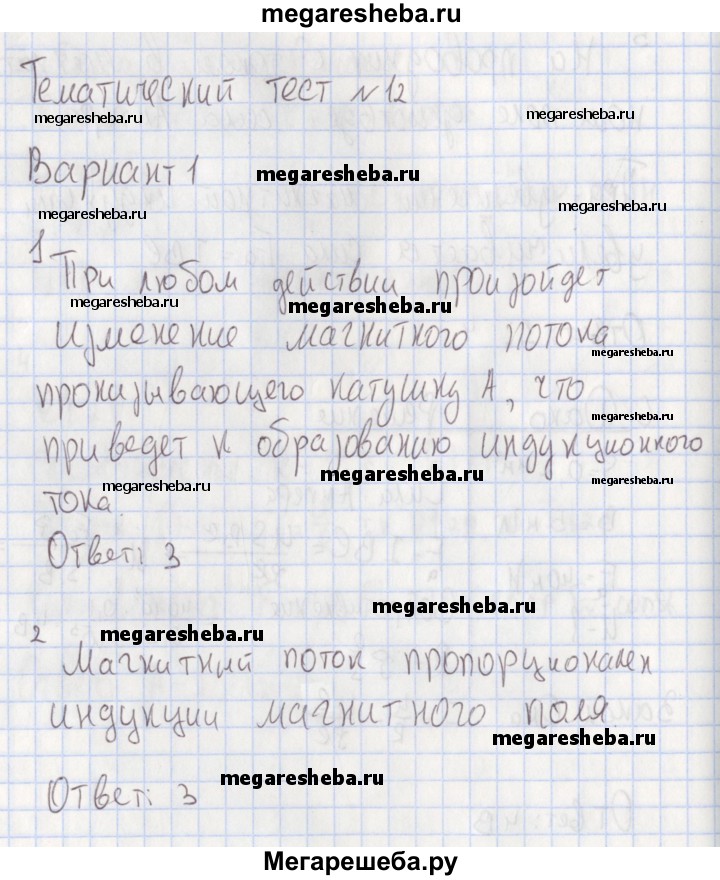 megaresheba.ru
Тематический тест №12
megaresheba.ru
megaresheba.ru
Вариант 1
megaresheba.ru
megaresheba.ru
megaresheba.ru
1
При любом действии произойдет
megaresheba.ru
megaresheba.ru
изменение магнитного потока
megaresheba.ru
пронизывающего катушку А, что
megaresheba.ru
приведет к образованию индукционного
megaresheba.ru
megaresheba.ru
megaresheba.ru
тока.
Ответ: 3
megaresheba.ru
2
megaresheba.ru
Магнитный поток пропорционален
индукции магнитного поля
megaresheba.ru
megaresheba.ru
Ответ: 3
Мегарешеба.ру